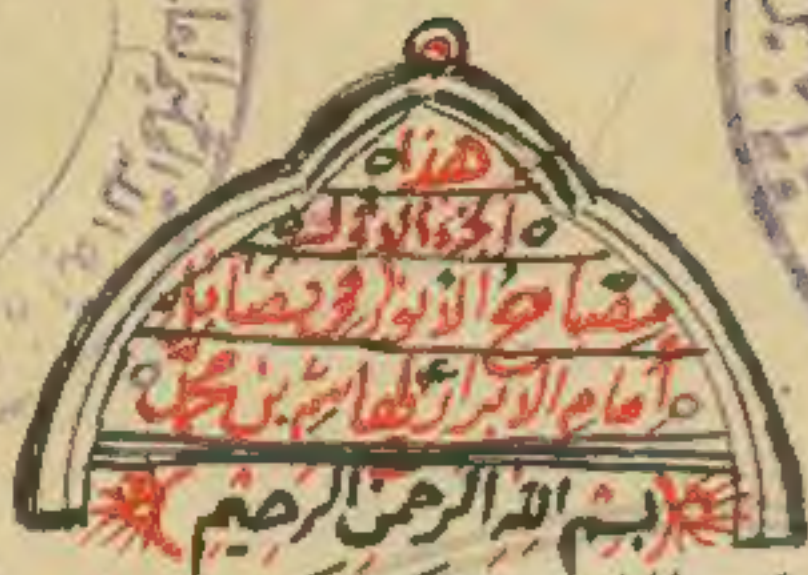 هذا
الجزء الاول
مصباح الانوار في فضايل
امام الابرار لهاشم بن محمد
بسم الله الرحمن الرحيم